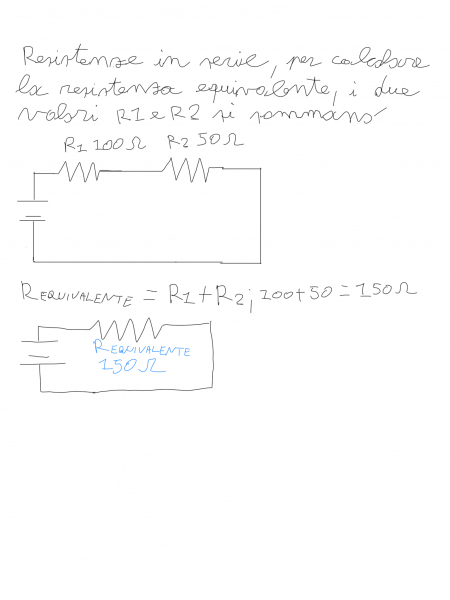 Resistenze in serie, per calcolare
la resistenza equivalente, i due
valori R1 e R2 si sommano
R1 100Ω R2 50Ω
REQUIVALENTE = R1+R2; 100+50=150Ω
REQUIVALENTE
150Ω